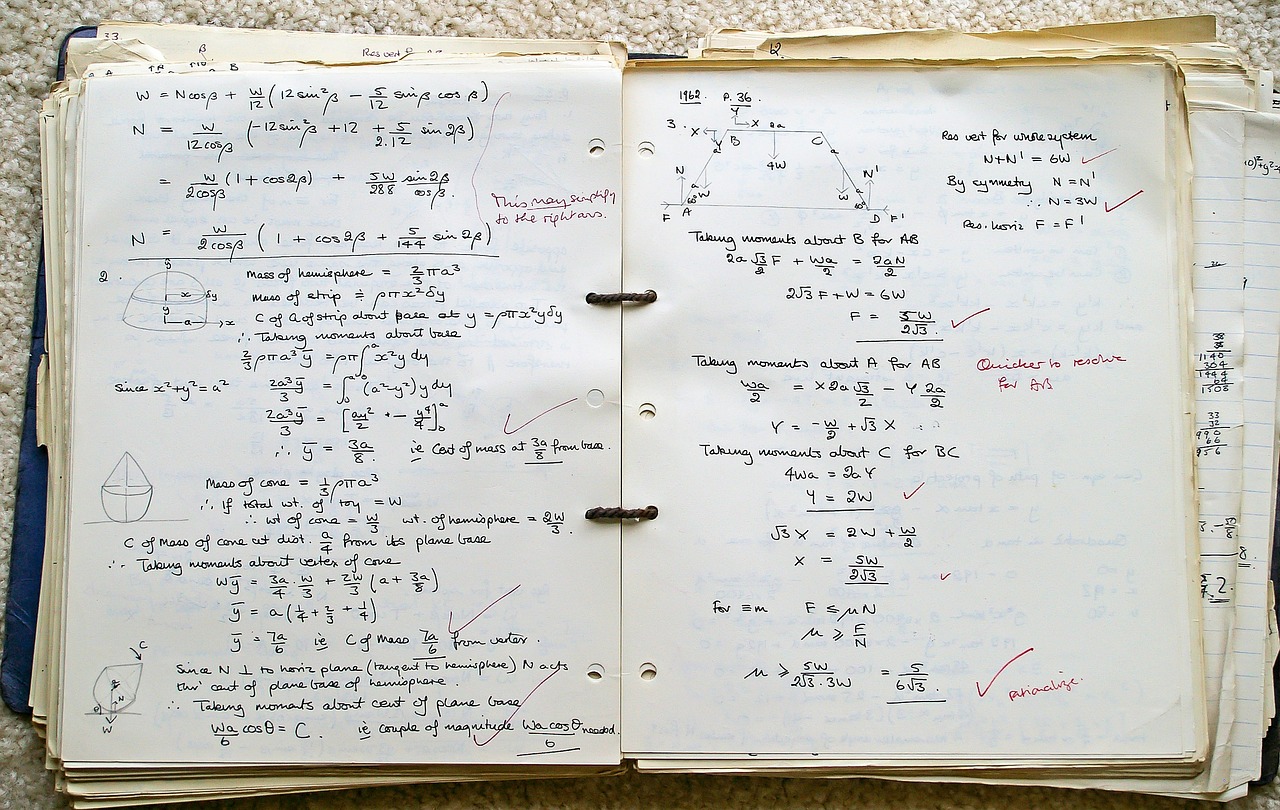 33.
β
Res vert
B
W = Ncosβ + W/12 (12 sin²β − 5/12 sinβ cosβ)
N = W/12cosβ (−12sin²β + 12 + 5/2.12 sin 2β)
= W/2cosβ (1 + cos2β) + 5W/288 sin2β/cosβ.
This may simplify
to the right ans.
N = W/2cosβ (1 + cos2β + 5/144 sin 2β)
2.
Mass of hemisphere = 2/3 πa³
y
x δy
y
a x
Mass of strip ≑ ρπx²δy
C of G of strip about base at y = ρπx²yδy
∴ Taking moments about base
2/3 ρπa³ȳ = ρπ∫₀ᵃ x²y dy
Since x²+y²=a² 2a³ȳ/3 = ∫₀ᵃ (a²−y²) y dy
2a³ȳ/3 = [ay²/2 − y⁴/4]₀ᵃ
∴ ȳ = 3a/8 ie Cent of mass at 3a/8 from base.
Mass of cone = 1/3 ρπa³
∴ If total wt. of toy = W
∴ wt of cone = W/3 wt. of hemisphere = 2W/3.
C of Mass of cone at dist. a/4 from its plane base
∴ Taking moments about vertex of cone
Wȳ = 3a/4 . W/3 + 2W/3 (a + 3a/8)
ȳ = a(1/4 + 2/3 + 1/4)
ȳ = 7a/6 ie C of Mass 7a/6 from vertex.
C
Since N ⊥ to horiz plane (tangent to hemisphere) N acts
thr' cent of plane base of hemisphere.
N
θ
W
∴ Taking moments about cent of plane base
Wa/6 cosθ = C. ie couple of magnitude Wa cosθ/6 needed.
12.
1962. P. 36.
3.
Y
X X 2a
Y B C
a a
4W
N N'
a W W a
60° 60°
F A D F'
Res vert for whole system
N+N' = 6W
By symmetry N = N'
∴ N = 3W
Res. horiz F = F'
Taking moments about B for AB
2a √3/2 F + Wa/2 = 2aN/2
2√3 F + W = 6W
F = 5W/2√3.
Taking moments about A for AB
Quicker to resolve
for AB
Wa/2 = X 2a √3/2 − Y 2a/2
Y = −W/2 + √3 X
Taking moments about C for BC
4Wa = 2aY
Y = 2W
√3 X = 2W + W/2
X = 5W/2√3
For ≡m F ≤ μN
μ ≥ F/N
μ ≥ 5W/2√3.3W = 5/6√3.
rationalize.
38
38
1140
304
1444
64
1508
33
32
990
66
956